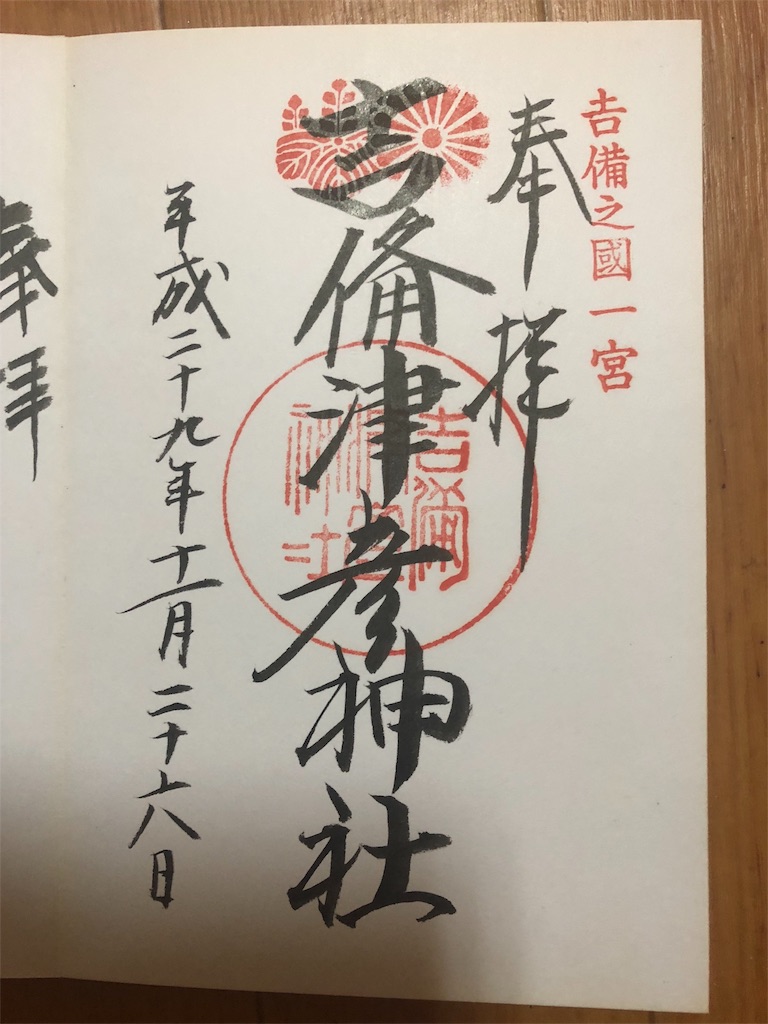 吉備之國一宮
奉拝
吉備津彦神社
吉備津彦神社
平成二十九年十一月二十六日
奉拝